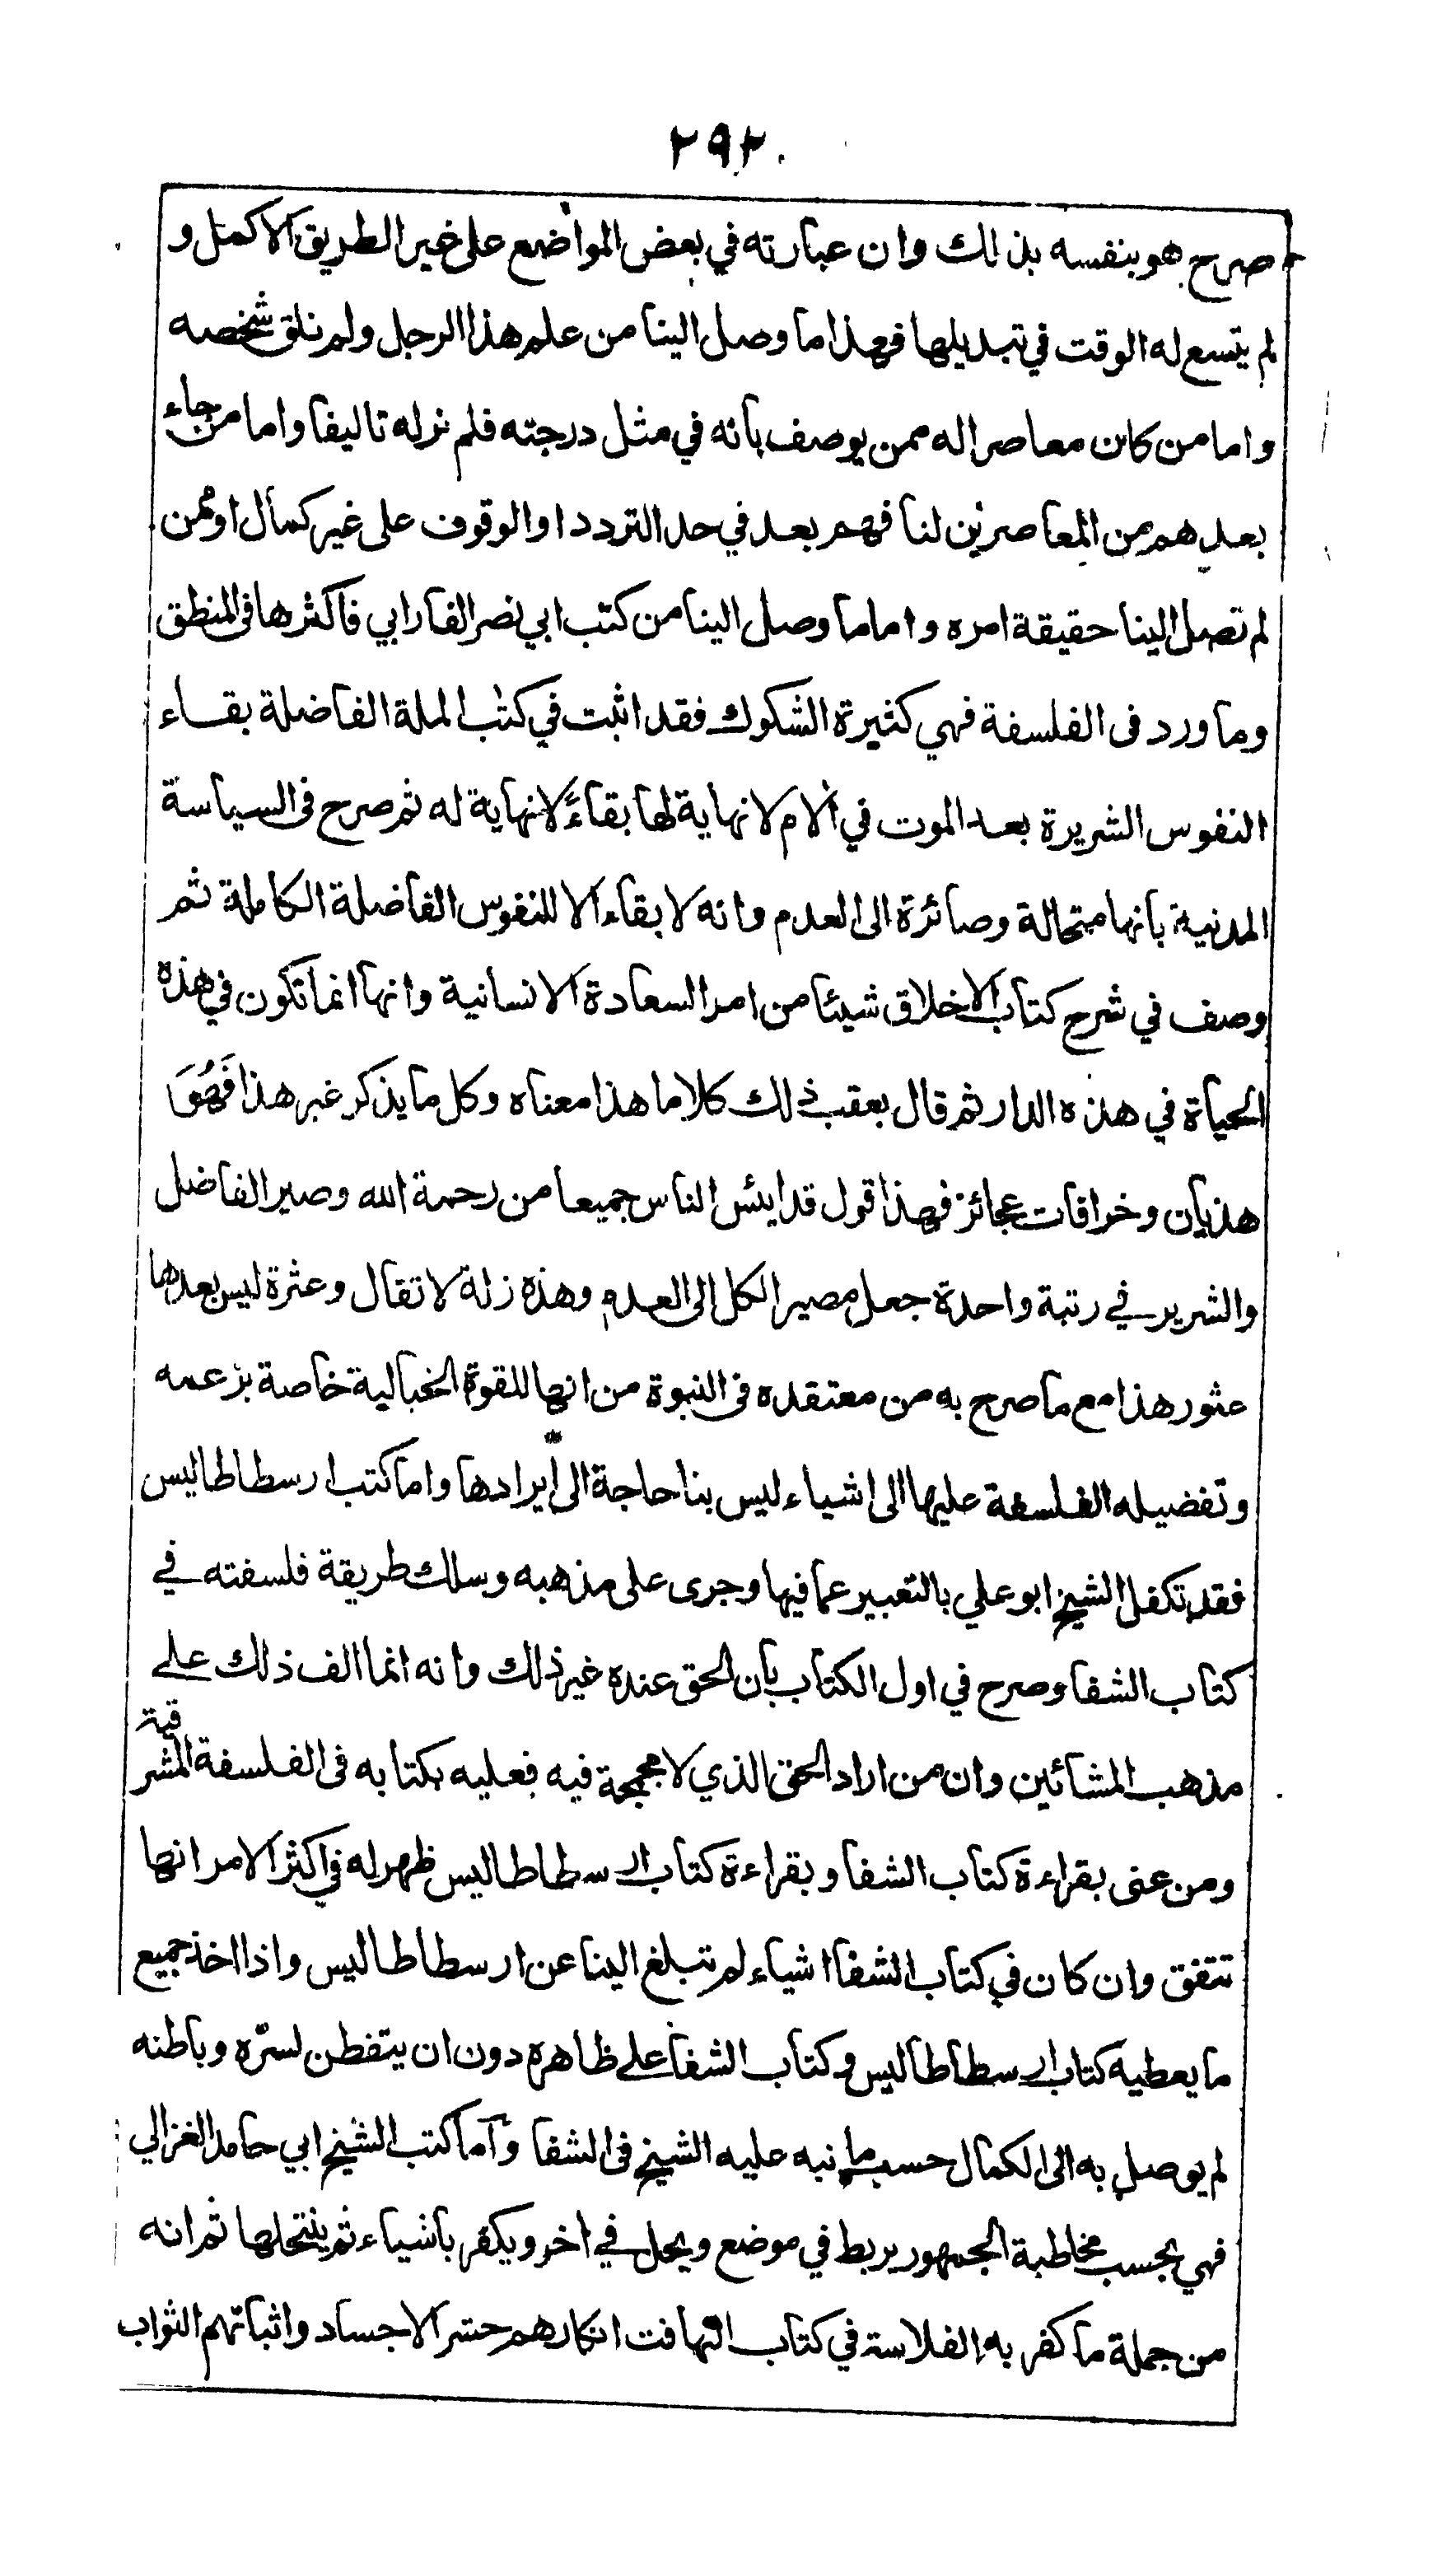 ٢٩٢
صرح هو بنفسه بذلك وان عبارته في بعض المواضع على غير الطريق الاكمل و
لم يتسع له الوقت في تبديلها فهذا ما وصل الينا من علم هذا الرجل ولم نلق شخصه
واما من كان معاصرا له ممن يوصف بانه في مثل درجته فلم نرله تاليفا واما من جاء
بعدهم من المعاصرين لنا فهم بعد في حد التردد او الوقوف على غير كمال او ممن
لم تصل الينا حقيقة امره واما ما وصل الينا من كتب ابي نصر الفارابي فاكثرها فى المنطق
وما ورد فى الفلسفة فهي كثيرة الشكوك فقد اثبت في كتاب الملة الفاضلة بقاء
النفوس الشريرة بعد الموت في آلام لا نهاية لها بقاءً لا نهاية له ثم صرح فى السياسة
المدنية بانها متحالة وصائرة الى العدم وانه لا بقاء الا للنفوس الفاضلة الكاملة ثم
وصف في شرح كتاب الاخلاق شيئا من امر السعادة الانسانية وانها انما تكون في هذه
الحياة في هذه الدار ثم قال بعقب ذلك كلاما هذا معناه وكل ما يذكر غير هذا فَهُوَ
هذيان وخرافات عجائز فهذا قول قد ايئس الناس جميعا من رحمة الله وصير الفاضل
والشرير في رتبة واحدة جعل مصير الكل الى العدم وهذه زلة لا تقال وعثرة ليس بعدها
عثور هذا مع ما صرح به من معتقده فى النبوة من انها للقوة الخيالية خاصة بزعمه
وتفضيله الفلسفة عليها الى اشياء ليس بنا حاجة الى ايرادها واما كتب ارسطاطاليس
فقد تكفل الشيخ ابو علي بالتعبير عما فيها وجرى على مذهبه وسلك طريقة فلسفته في
كتاب الشفا وصرح في اول الكتاب بان الحق عنده غير ذلك وانه انما الف ذلك على
مذهب المشائين وان من اراد الحق الذي لا مججمة فيه فعليه بكتابه فى الفلسفة المشرقية
ومن عنى بقراءة كتاب الشفا وبقراءة كتاب ارسطاطاليس ظهر له في اكثر الامر انها
تتفق وان كان في كتاب الشفا اشياء لم تبلغ الينا عن ارسطاطاليس واذا اخذ جميع
ما يعطيه كتاب ارسطاطاليس وكتاب الشفا على ظاهره دون ان يتفطن لسرّه وباطنه
لم يوصل به الى الكمال حسب ما نبه عليه الشيخ فى الشفا وآما كتب الشيخ ابي حامد الغزالي
فهي بحسب مخاطبة الجمهور يربط في موضع ويحل في اخر ويكفر باشياء ثم ينتحلها ثم انه
من جملة ما كفر به الفلاسة في كتاب التهافت انكارهم حشر الاجساد واثباتهم الثواب